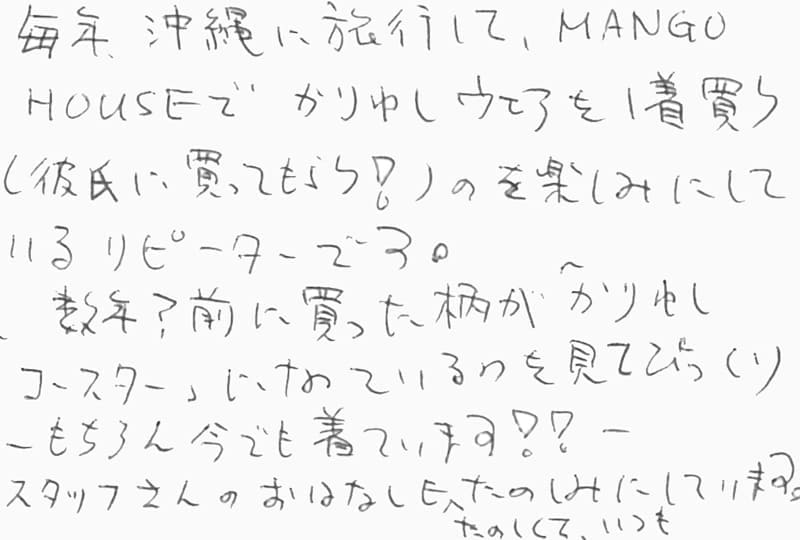 毎年、沖縄に旅行して、MANGO
HOUSEで かりゆしウェアを1着買う
(彼氏に買ってもらう!)のを楽しみにして
いるリピーターです。
数年?前に買った柄が「かりゆし
コースター」になっているのを見てびっくり
-もちろん今でも着ています!!-
スタッフさんのおはなしも、たのしみにしています。
たのしくて、いつも